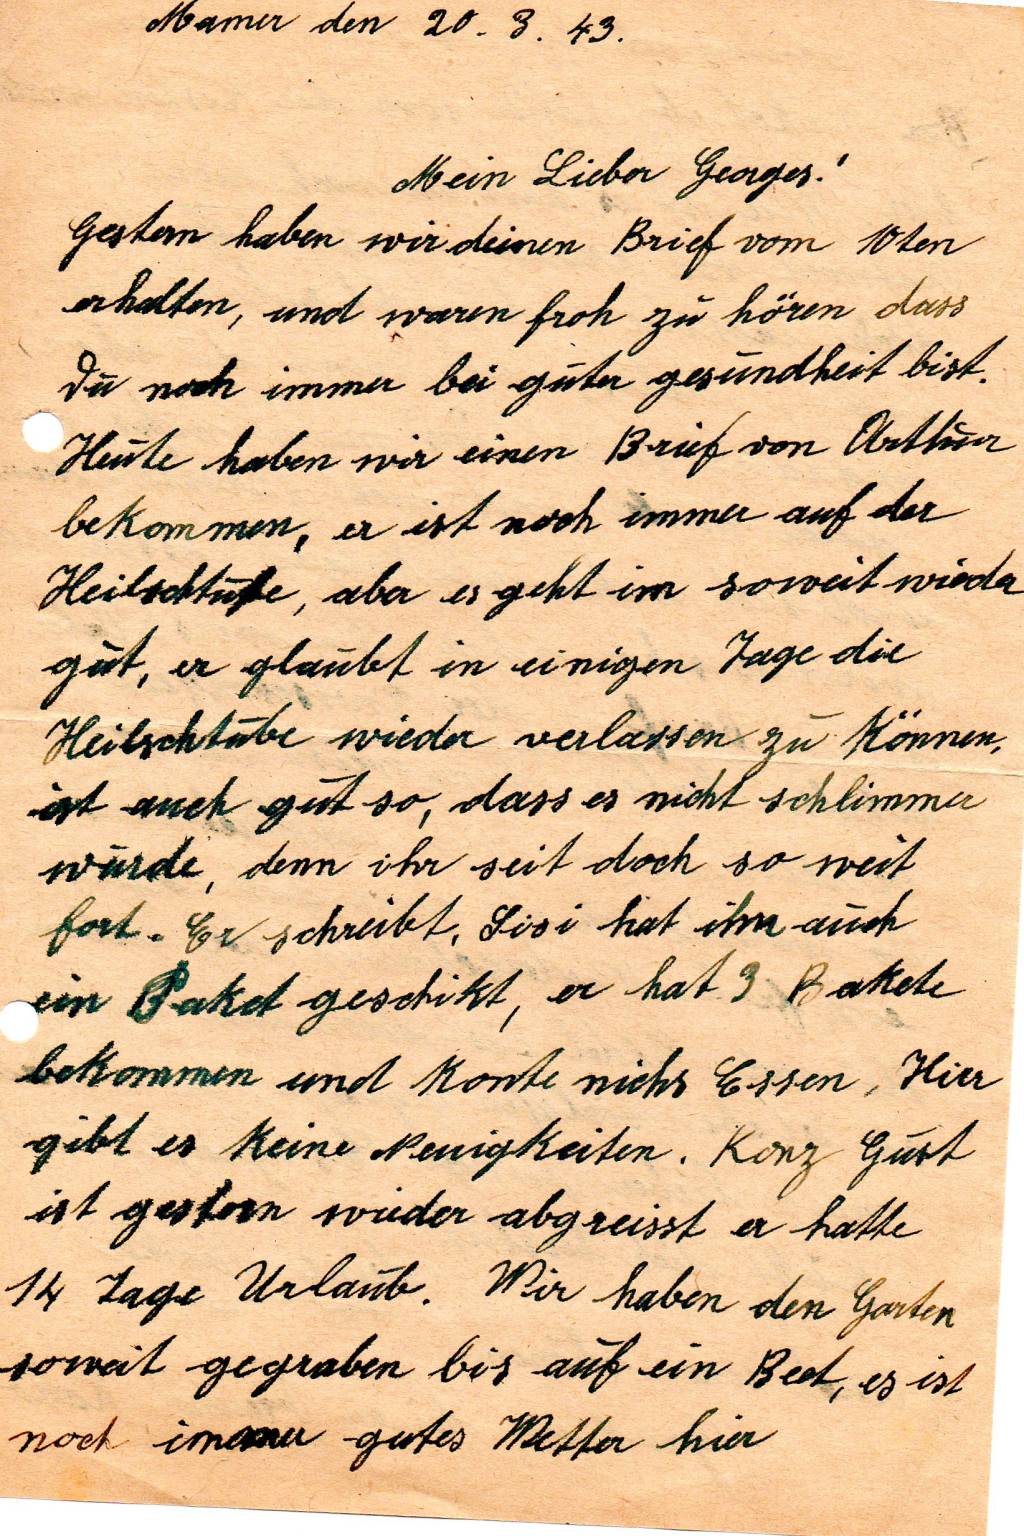 Mamer den 20. 3. 43.
Mein Lieber Georges!
Gestern haben wir deinen Brief vom 10ten
erhalten, und waren froh zu hören dass
du noch immer bei guter gesundheit bist.
Heute haben wir einen Brief von Arthur
bekommen, er ist noch immer auf der
Heilschtube, aber es geht im soweit wieder
gut, er glaubt in einigen Tage die
Heilschtube wieder verlassen zu Können,
ist auch gut so, dass es nicht schlimmer
wurde, denn ihr seit doch so weit
fort. Er schreibt, Sisi hat ihm auch
ein Paket geschikt, er hat 3 Bakete
bekommen und Konte nichs Essen, Hier
gibt es Keine Neuigkeiten. Konz Gust
ist gestern wieder abgreisst er hatte
14 Tage Urlaub. Wir haben den Garten
soweit gegraben bis auf ein Beet, es ist
noch immer gutes Wetter hier